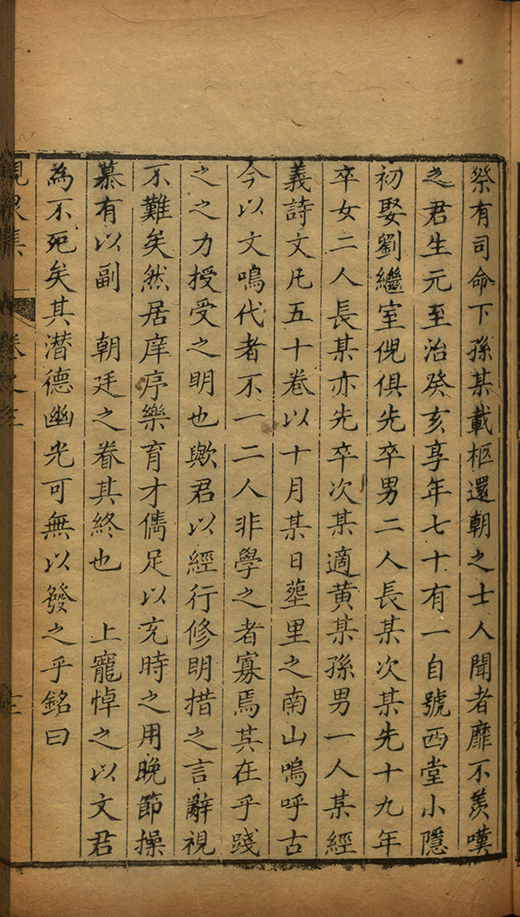 祭有司命下孫某載柩還朝之士人聞者靡不羨嘆
之君生元至治癸亥享年七十有一自號西堂小隱
初娶劉繼室倪俱先卒男二人長某次某先十九年
卒女二人長某亦先卒次某適黃某孫男一人某經
義詩文凡五十卷以十月某日塟里之南山嗚呼古
今以文鳴代者不一二人非學之者寡焉其在乎踐
之之力授受之明也歟君以經行修明措之言辭視
不難矣然居庠序樂育才儁足以充時之用晚節操
慕有以副 朝廷之眷其終也 上寵悼之以文君
為不死矣其潛德幽光可無以發之乎銘曰